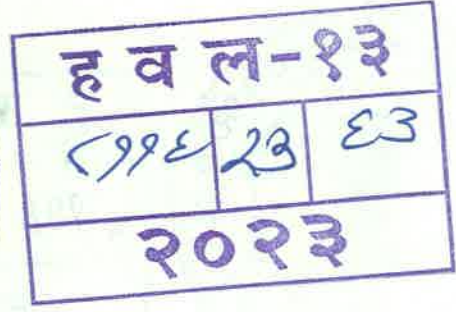 ह व ल-१३
८११६ 23 ६३
२०२३